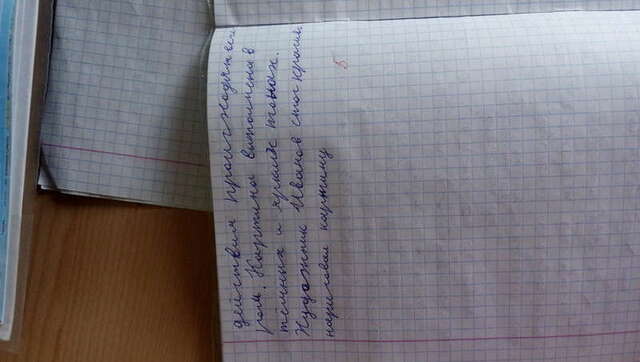 действия происходят вече
ром. Картина выполнена в
тёмных и ярких тонах.
Художник Иванов смог красиво
нарисовал картину
5